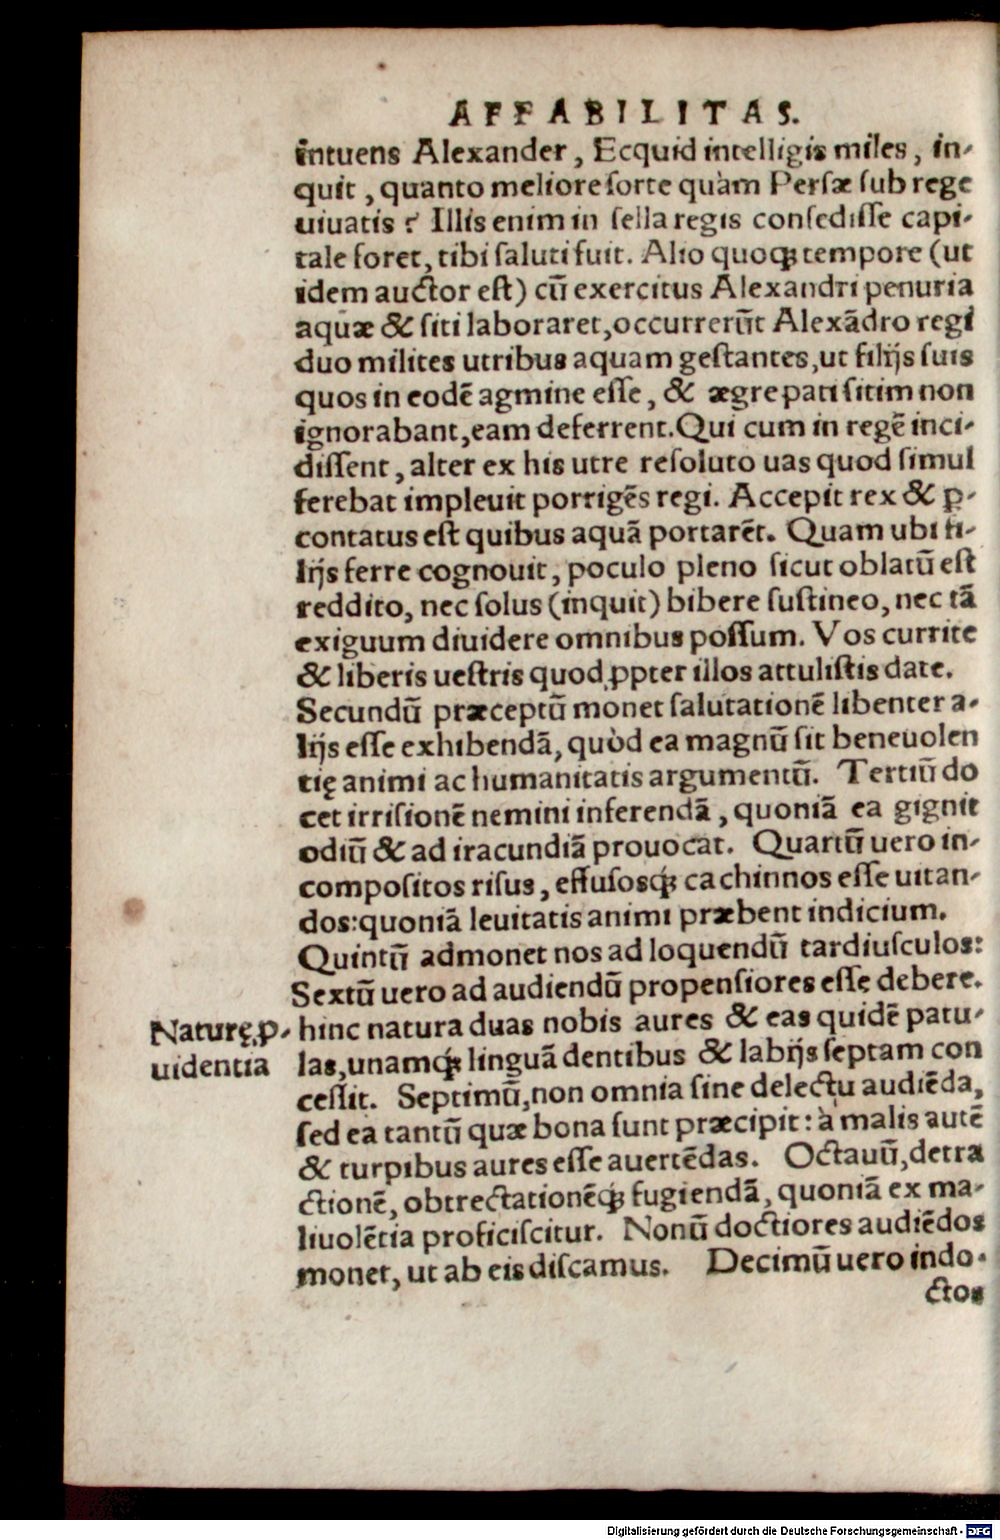 AFFABILITAS.
intuens Alexander, Ecquid intelligis miles, in-
quit, quanto meliore sorte quàm Persæ sub rege
uiuatis? Illis enim in sella regis consedisse capi-
tale foret, tibi saluti fuit. Alio quoqꝫ tempore (ut
idem auctor est) cū exercitus Alexandri penuria
aquæ & siti laboraret, occurrerūt Alexādro regi
duo milites utribus aquam gestantes, ut filijs suis
quos in eodē agmine esse, & ægre pati sitim non
ignorabant, eam deferrent. Qui cum in regē inci-
dissent, alter ex his utre resoluto uas quod simul
ferebat impleuit porrigēs regi. Accepit rex & p̲-
contatus est quibus aquā portarēt. Quam ubi fi-
lijs ferre cognouit, poculo pleno sicut oblatū est
reddito, nec solus (inquit) bibere sustineo, nec tā
exiguum diuidere omnibus possum. Vos currite
& liberis uestris quod ꝓpter illos attulistis date.
Secundū præceptū monet salutationē libenter a-
lijs esse exhibendā, quòd ea magnū sit beneuolen
tię animi ac humanitatis argumentū. Tertiū do
cet irrisionē nemini inferendā, quoniā ea gignit
odiū & ad iracundiā prouocat. Quartū uero in-
compositos risus, effusosqꝫ cachinnos esse uitan-
dos: quoniā leuitatis animi præbent indicium.
Quintū admonet nos ad loquendū tardiusculos:
Sextū uero ad audiendū propensiores esse debere.
Naturę ꝓ-
uidentia
hinc natura duas nobis aures & eas quidē patu-
las, unamqꝫ linguā dentibus & labrijs septam con
cessit. Septimū, non omnia sine delectu audiēda,
sed ea tantū quæ bona sunt præcipit: à malis autē
& turpibus aures esse auertēdas. Octauū, detra
ctionē, obtrectationēqꝫ fugiendā, quoniā ex ma-
liuolētia proficiscitur. Nonū doctiores audiēdos
monet, ut ab eis discamus. Decimū uero indo-
ctos
Digitalisierung gefördert durch die Deutsche Forschungsgemeinschaft - DFG